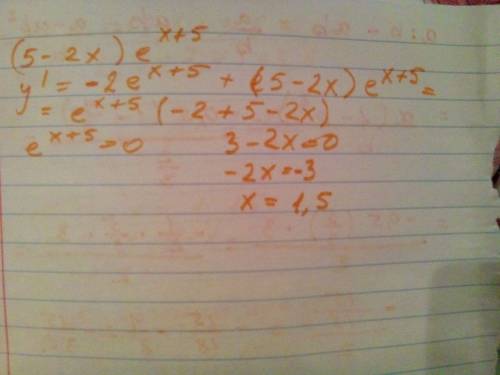 (5 - 2x) e^{x+5}
y' = -2e^{x+5} + (5-2x) e^{x+5} =
= e^{x+5} (-2 + 5 - 2x)
e^{x+5} = 0 3 - 2x = 0
-2x = -3
x = 1,5